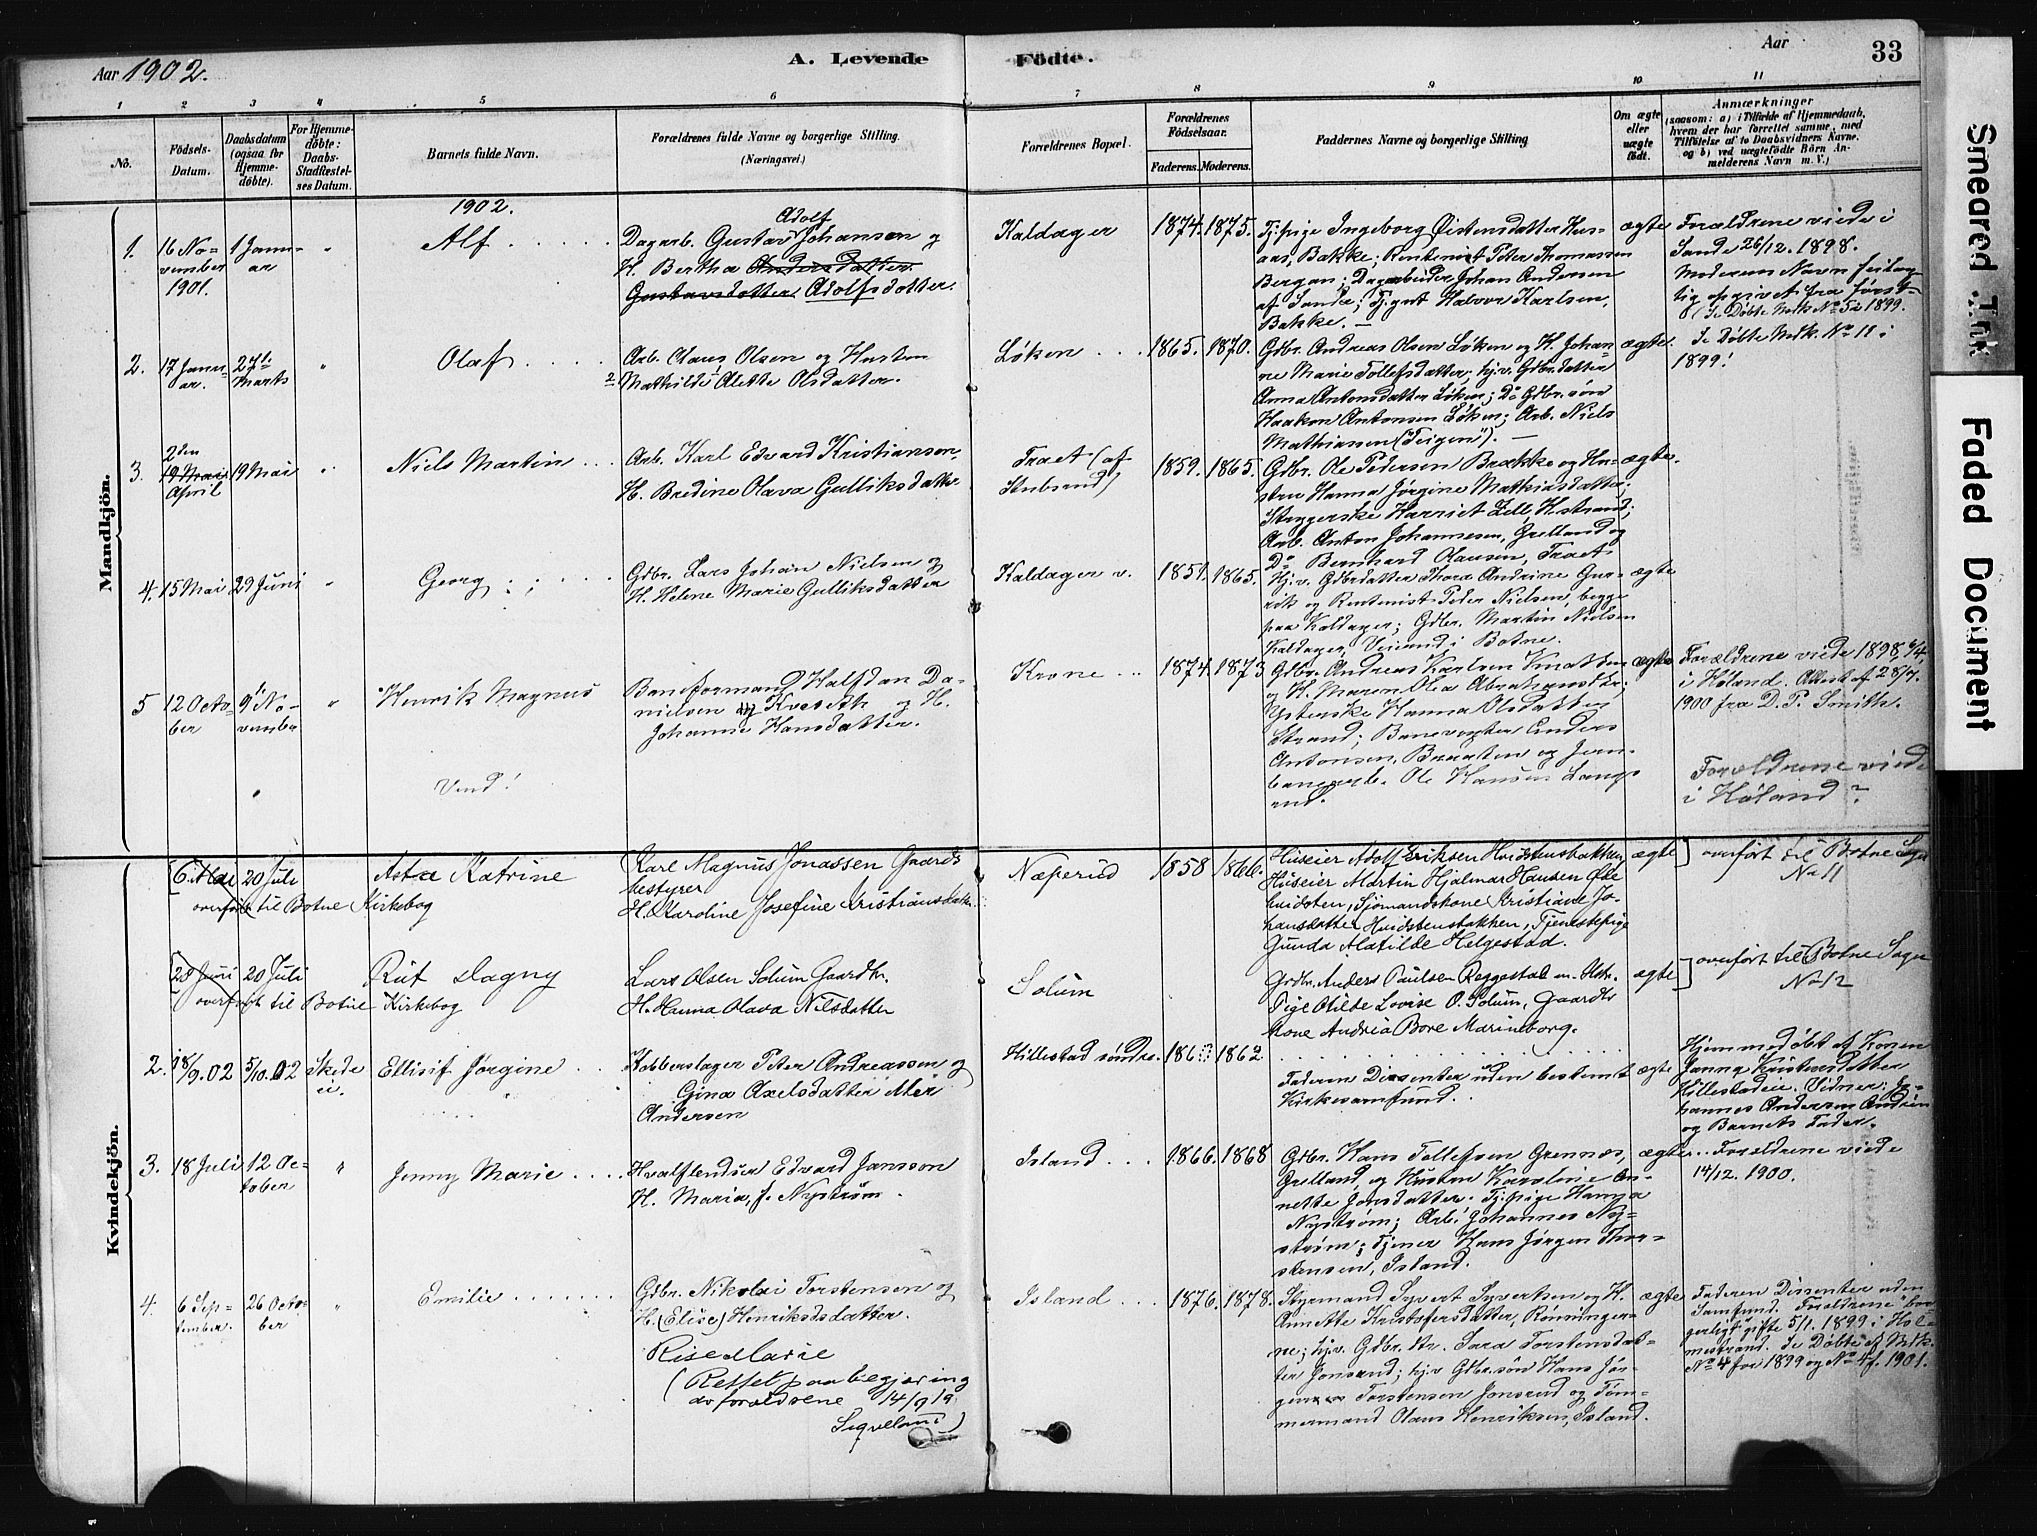 Aar 1902.
A. Levende
Födte.
Aar
33
1
2
3
4
5
6
7
8
9
10
11
No.
Födsels-
Datum.
Daabsdatum
(ogsaa for
Hjemme-
döbte).
For Hjemme-
döbte:
Daabs-
Stadfæstel-
ses Datum.
Barnets fulde Navn.
Forældrenes fulde Navne og borgerlige Stilling.
(Næringsvei.)
Forældrenes Bopæl.
Forældrenes
Födselsaar.
Faderens.
Moderens.
Faddernes Navne og borgerlige Stilling
Om ægte
eller
uægte
födt.
Anmærkninger
(saasom: a) i Tilfælde af Hjemmedaab,
hvem der har forrettet samme, med
Tilföielse af to Daabsvidners Navne.
og b) ved uægtefödte Börn An-
melderens Navn m. V.)
Mandkjön.
1902.
1.
16 No-
vember
1901.
1 Janu-
ar
"
Alf
Adolf
Dagarb. Gustav Johansen og
H. Bertha Andersdatter
Gustavsdatter Adolfsdatter.
Kaldager
1874.
1875.
Tjpige Ingeborg Øistensdatter Hus-
aas, Bakke; Rentenist Peter Thomassen
Bergan; Dagarbeider Johan Andersen
af Sande; Tjgut Halvor Karlsen,
Bakke. —
ægte
Forældrene viede i
Sande 26/12. 1898.
Moderens Navn feilag-
tig opgivet fra først
(Se Døbte Mdk No 5 i 1899.
2.
17 Janu-
ar.
27de
Marts
"
Olaf
Arb. Olaus Olsen og Hustru
Mathilde Alette Olsdatter.
Løken
1865.
1870.
Gdbr. Andreas Olsen Løken og H. Johan-
ne Marie Tollefsdatter; hjv. Gdbr.datter
Anna Antonsdatter Løken; Do Gdbr.søn
Haakon Antonsen Løken; Arb. Niels
Mathiassen ("Teigen"). —
ægte.
Se Døbte Mdk. No 11 i
1899!
3.
2den
19 Mai
April
19 Mai
"
Niels Martin
Arb. Karl Edvard Kristiansen,
H. Bredine Olava Gulliksdatter
Traet (af
1859.
1865.
Gdbr. Ole Pedersen Brække og Hu-
stru Hanna Jørgine Mathiasdatter;
Arb. Anton Johannesen, Grelland og
Do Bernhard Olausen, Traet.
ægte.
4.
15 Mai
29 Juni
"
Georg
Gdbr. Lars Johan Nielsen og
H. Helene Marie Gulliksdatter
Kaldager v.
1851.
1865.
Hj.v. Gdbrdatter Thora Andrine Gur-
rik og Rentenist Peder Nielsen, begge
paa Kaldager; Gdbr. Martin Nielsen
Kaldager, Veierud i Botne.
ægte
5
12 Octo-
ber
9de No-
vember
"
Henrik Magnus
Baneformand Halfdan Da-
nielsen Kveseth og H.
Johanne Hansdatter.
Krone
1874.
1873
Gdbr. Andreas Karlsen Knatten
og H. Maren Olea Abrahamsdtr;
Ysterske Hanna Olsdatter
Strand; Banevogter Anders
Antonsen, Braaten og Jern-
banearb. Ole Hansen Langs
rud.
ægte
Forældrene viede 1898,
i Høland. Attest af 28/7.
1900 fra D. P. Smith.
Forældrene viede
i Høland?
Vend!
Kvindekjön.
6. Mai
20 Juli
overført til Botne Kirkebog
Asta Katrine
Karl Magnus Jonassen Gaards
bestyrer
H. Karoline Josefine Kristiansdatter
Næperud
1858
1866.
Huseier Adolf Eriksen Hvidstensbakken,
Huseier Martin Hjalmar Hansen Ølle
hvidsten, Sjømandskone Kristiane Jo-
hansdatter Hvidstensbakken, Tjenestepige
Gunda Matilde Helgestad.
ægte
overført til Botne Sogn
No 11
28 Juni
20 Juli
overført til Botne Kirkebog
Rut Dagny
Lars Olsen Solum Gaardbr.
H. Hanna Olava Nilsdatter
Solum
Grdbr. Anders Paulsen Reggestad m. Hstr.
Pige Hilde Lovise O. Solum, Gaardbr
Kone Andrea Bore Marienborg.
ægte
overført til Botne Sogn
No 12
2.
18/9.02
5/10.02
Skede
ü.
Ellisif Jørgine
Kobberslager Peter Andreassen og
Gina Axelsdatter eller
Andersen
Hillestad søndre.
186
1862
Faderen Dissenter uden bestemt
Kirkesamfund.
ægte
Hjemmedøbt af Konen
Janna Kristensdatter
Hillestadeie. Vidner: Jo-
hannes Andersen Andeien
og Barnets Fader.
3.
18 Juli
12 Oc-
tober
"
Jenny Marie
Hvalflendser Edvard Jansson
H. Maria, f. Nystrøm.
Island
1866.
1868
Gdbr. Hans Tollefsen Grennes,
Grelland, og Hustru Karoline An-
nette Jonsdatter. Tj.pige Hanna
Nystrøm; Arb. Johannes Ny-
strøm; Tjener Hans Jørgen Thor-
stensen, Island.
ægte
Forældrene viede
14/12. 1900.
4.
6 Sep-
tember.
26 Octo-
ber
"
Emilie
Gdbr. Nikolai Torstensen og
H. (Elise) Henriksdatter.
Rise Marie
(Rettet paa begjæring
av forældrene 14/9 19
Island
1876.
1878.
Styrmand Syvert Syvertsen og H.
Annette Kristofersdatter, Rønninger-
ne; hjv. Gdbr.dtr. Sara Torstensdat-
ter Jonsrud; hjv Gdbr.søn Hans Jør-
gen Torstensen Jonsrud og Tøm-
mermand Olaus Henriksen, Island.
ægte
Faderen Dissenter uden
Samfund. Forældrene bor-
gerligt gifte 5/1. 1899 i Hol-
mestrand. Se Døbte af Mdk.
No 4 for 1899 og No 4 f. 1901.
Smeared Ink
Faded Document